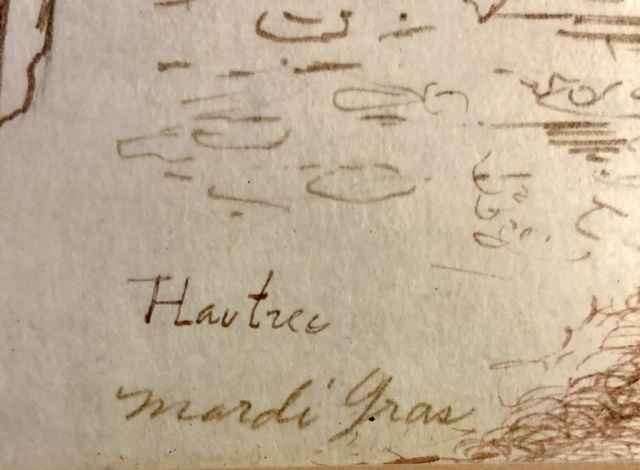 Hautrec
mardi Gras